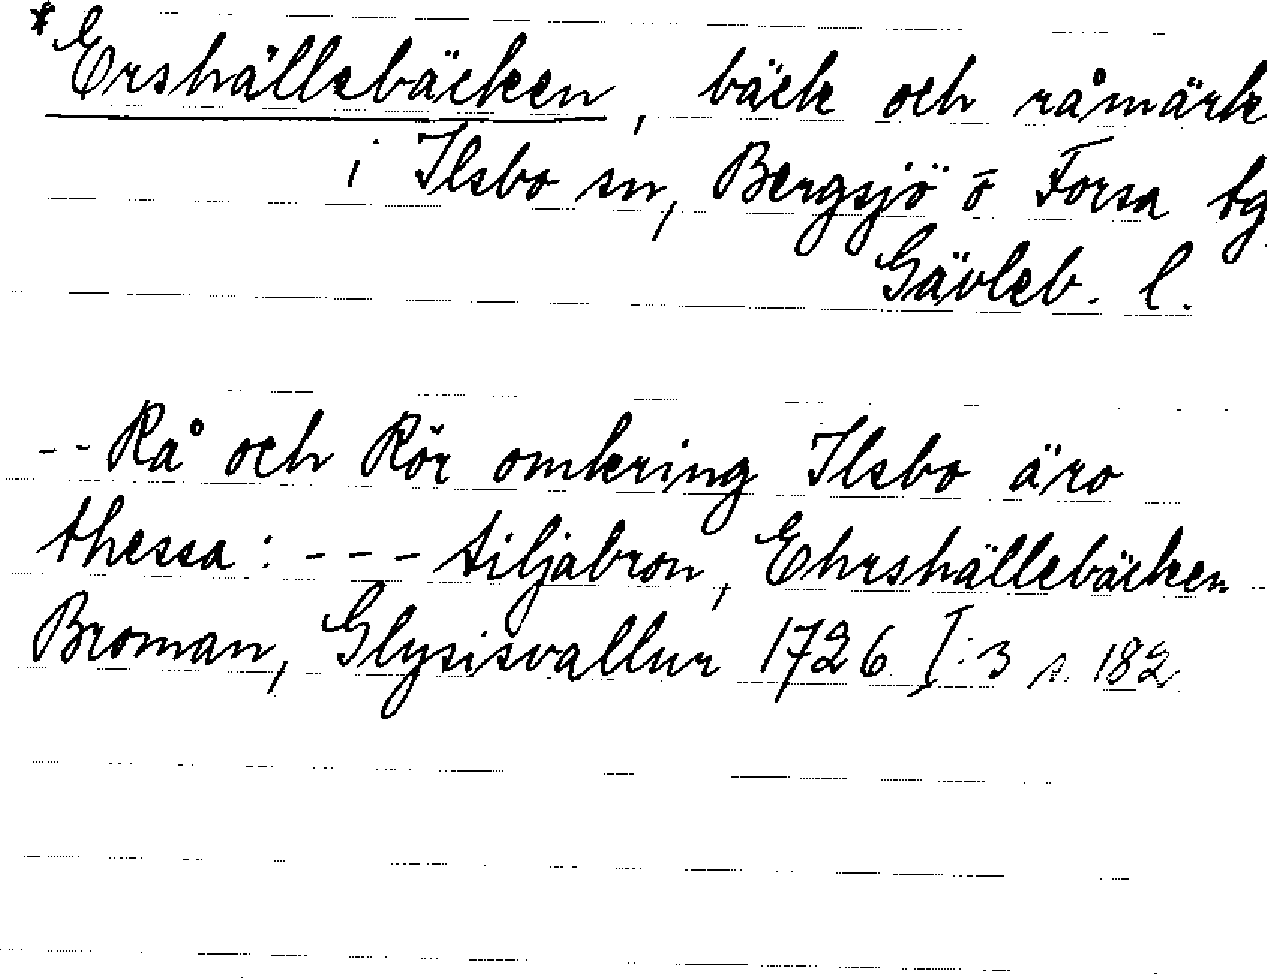 *Ershällebäcken, bäck och råmärk
i Ilsbo sn, Bergsjö o Forsa tg
Gävleb. l.
-- Rå och Rör omkring Ilsbo äro
thessa: --- tiljabron, Ehrshällebäcken -
Broman, Glysisvallur 1726 I:3 s. 182